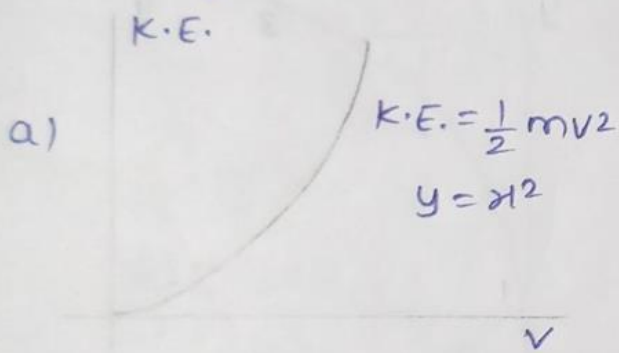 K.E.
a)
K.E. = 1/2 mv2
y = x²
V